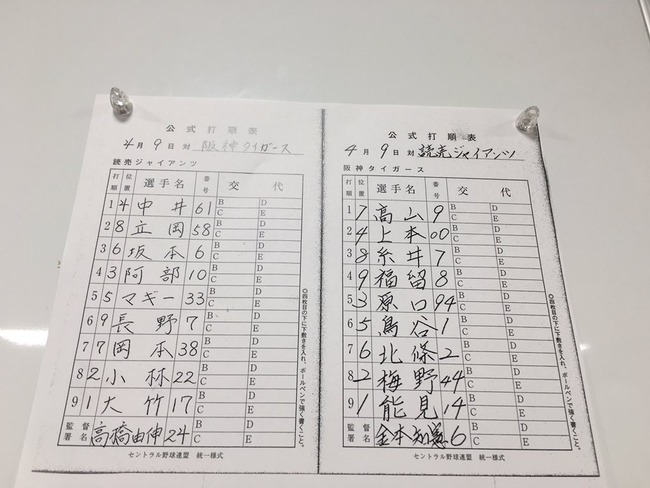 公式打順表
4月9日 対 阪神タイガース
読売ジャイアンツ
打順 位置 選手名 番号 交代
1 4 中井 61 B D C E
2 8 立岡 58 B D C E
3 6 坂本 6 B D C E
4 3 阿部 10 B D C E
5 5 マギー 33 B D C E
6 9 長野 7 B D C E
7 7 岡本 38 B D C E
8 2 小林 22 B D C E
9 1 大竹 17 B D C E
監督署名 高橋由伸 24
◎四枚目の下に下敷きを入れ、ボールペンで強く書くこと。
セントラル野球連盟 統一様式
公式打順表
4月9日 対 読売ジャイアンツ
阪神タイガース
打順 位置 選手名 番号 交代
1 7 高山 9 B D C E
2 4 上本 00 B D C E
3 8 糸井 7 B D C E
4 9 福留 8 B D C E
5 3 原口 94 B D C E
6 5 鳥谷 1 B D C E
7 6 北條 2 B D C E
8 2 梅野 44 B D C E
9 1 能見 14 B D C E
監督署名 金本知憲 6
◎四枚目の下に下敷きを入れ、ボールペンで強く書くこと。
セントラル野球連盟 統一様式